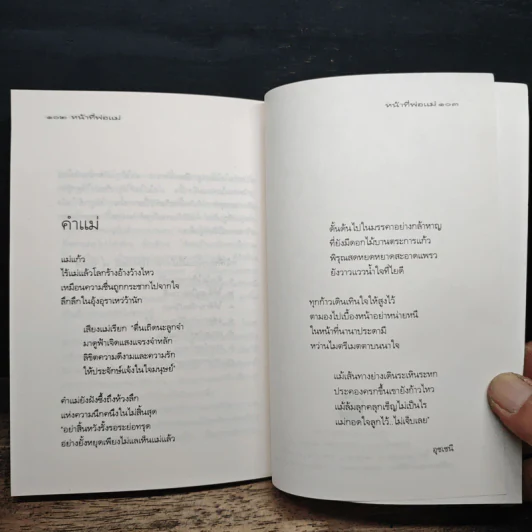 ๑๐๒ หน้าที่พ่อแม่
คำแม่
แม่แก้ว
ไร้แม่แล้วโลกร้างอ้างว้างไหว
เหมือนความชื่นถูกกระชากไปจากใจ
ลึกลึกในอุ้งอุราเหว่ว้านัก
เสียงแม่เรียก "ตื่นเถิดนะลูกจ๋า
มาดูฟ้าเจิดแสงแจรงจำหลัก
ลิขิตความดีงามและความรัก
ให้ประจักษ์แจ้งในใจมนุษย์"
คำแม่ยังฝังซึ้งถึงห้วงลึก
แห่งความนึกคนึงในไม่สิ้นสุด
"อย่าสิ้นหวังรั้งรอระย่อทรุด
อย่างยั้งหยุดเพียงไม่แลเห็นแม่แล้ว
หน้าที่พ่อแม่ ๑๐๓
ดั้นด้นไปในมรรคาอย่างกล้าหาญ
ที่ยังมีดอกไม้บานตระการแก้ว
พิรุณสดหยดหยาดสะอาดแพรว
ยังวาวแววน้ำใจที่ใยดี
ทุกก้าวเดินเทินใจให้สูงไว้
ตามองไปเบื้องหน้าอย่าหน่ายหนี
ในหน้าที่นานาประดามี
หว่านไมตรีเมตตาบนนาใจ
แม้เส้นทางย่างเดินระเหินระหก
ประคองครกขึ้นเขายังก้าวไหว
แม้ล้มลุกคลุกเชิญไม่เป็นไร
แม่กอดใจลูกไว้..ไม่เจ็บเลย"
อุชเชนี